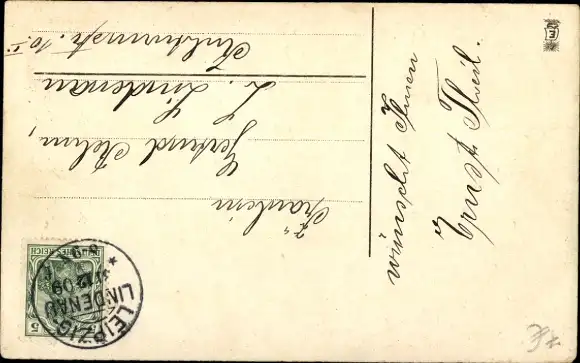 wünscht Ihnen
Ernst Theil.
Fräulein
Gertrud Helm,
L. Lindenau
LEIPZIG-
LINDENAU
12.09
DEUTSCHES REICH
5